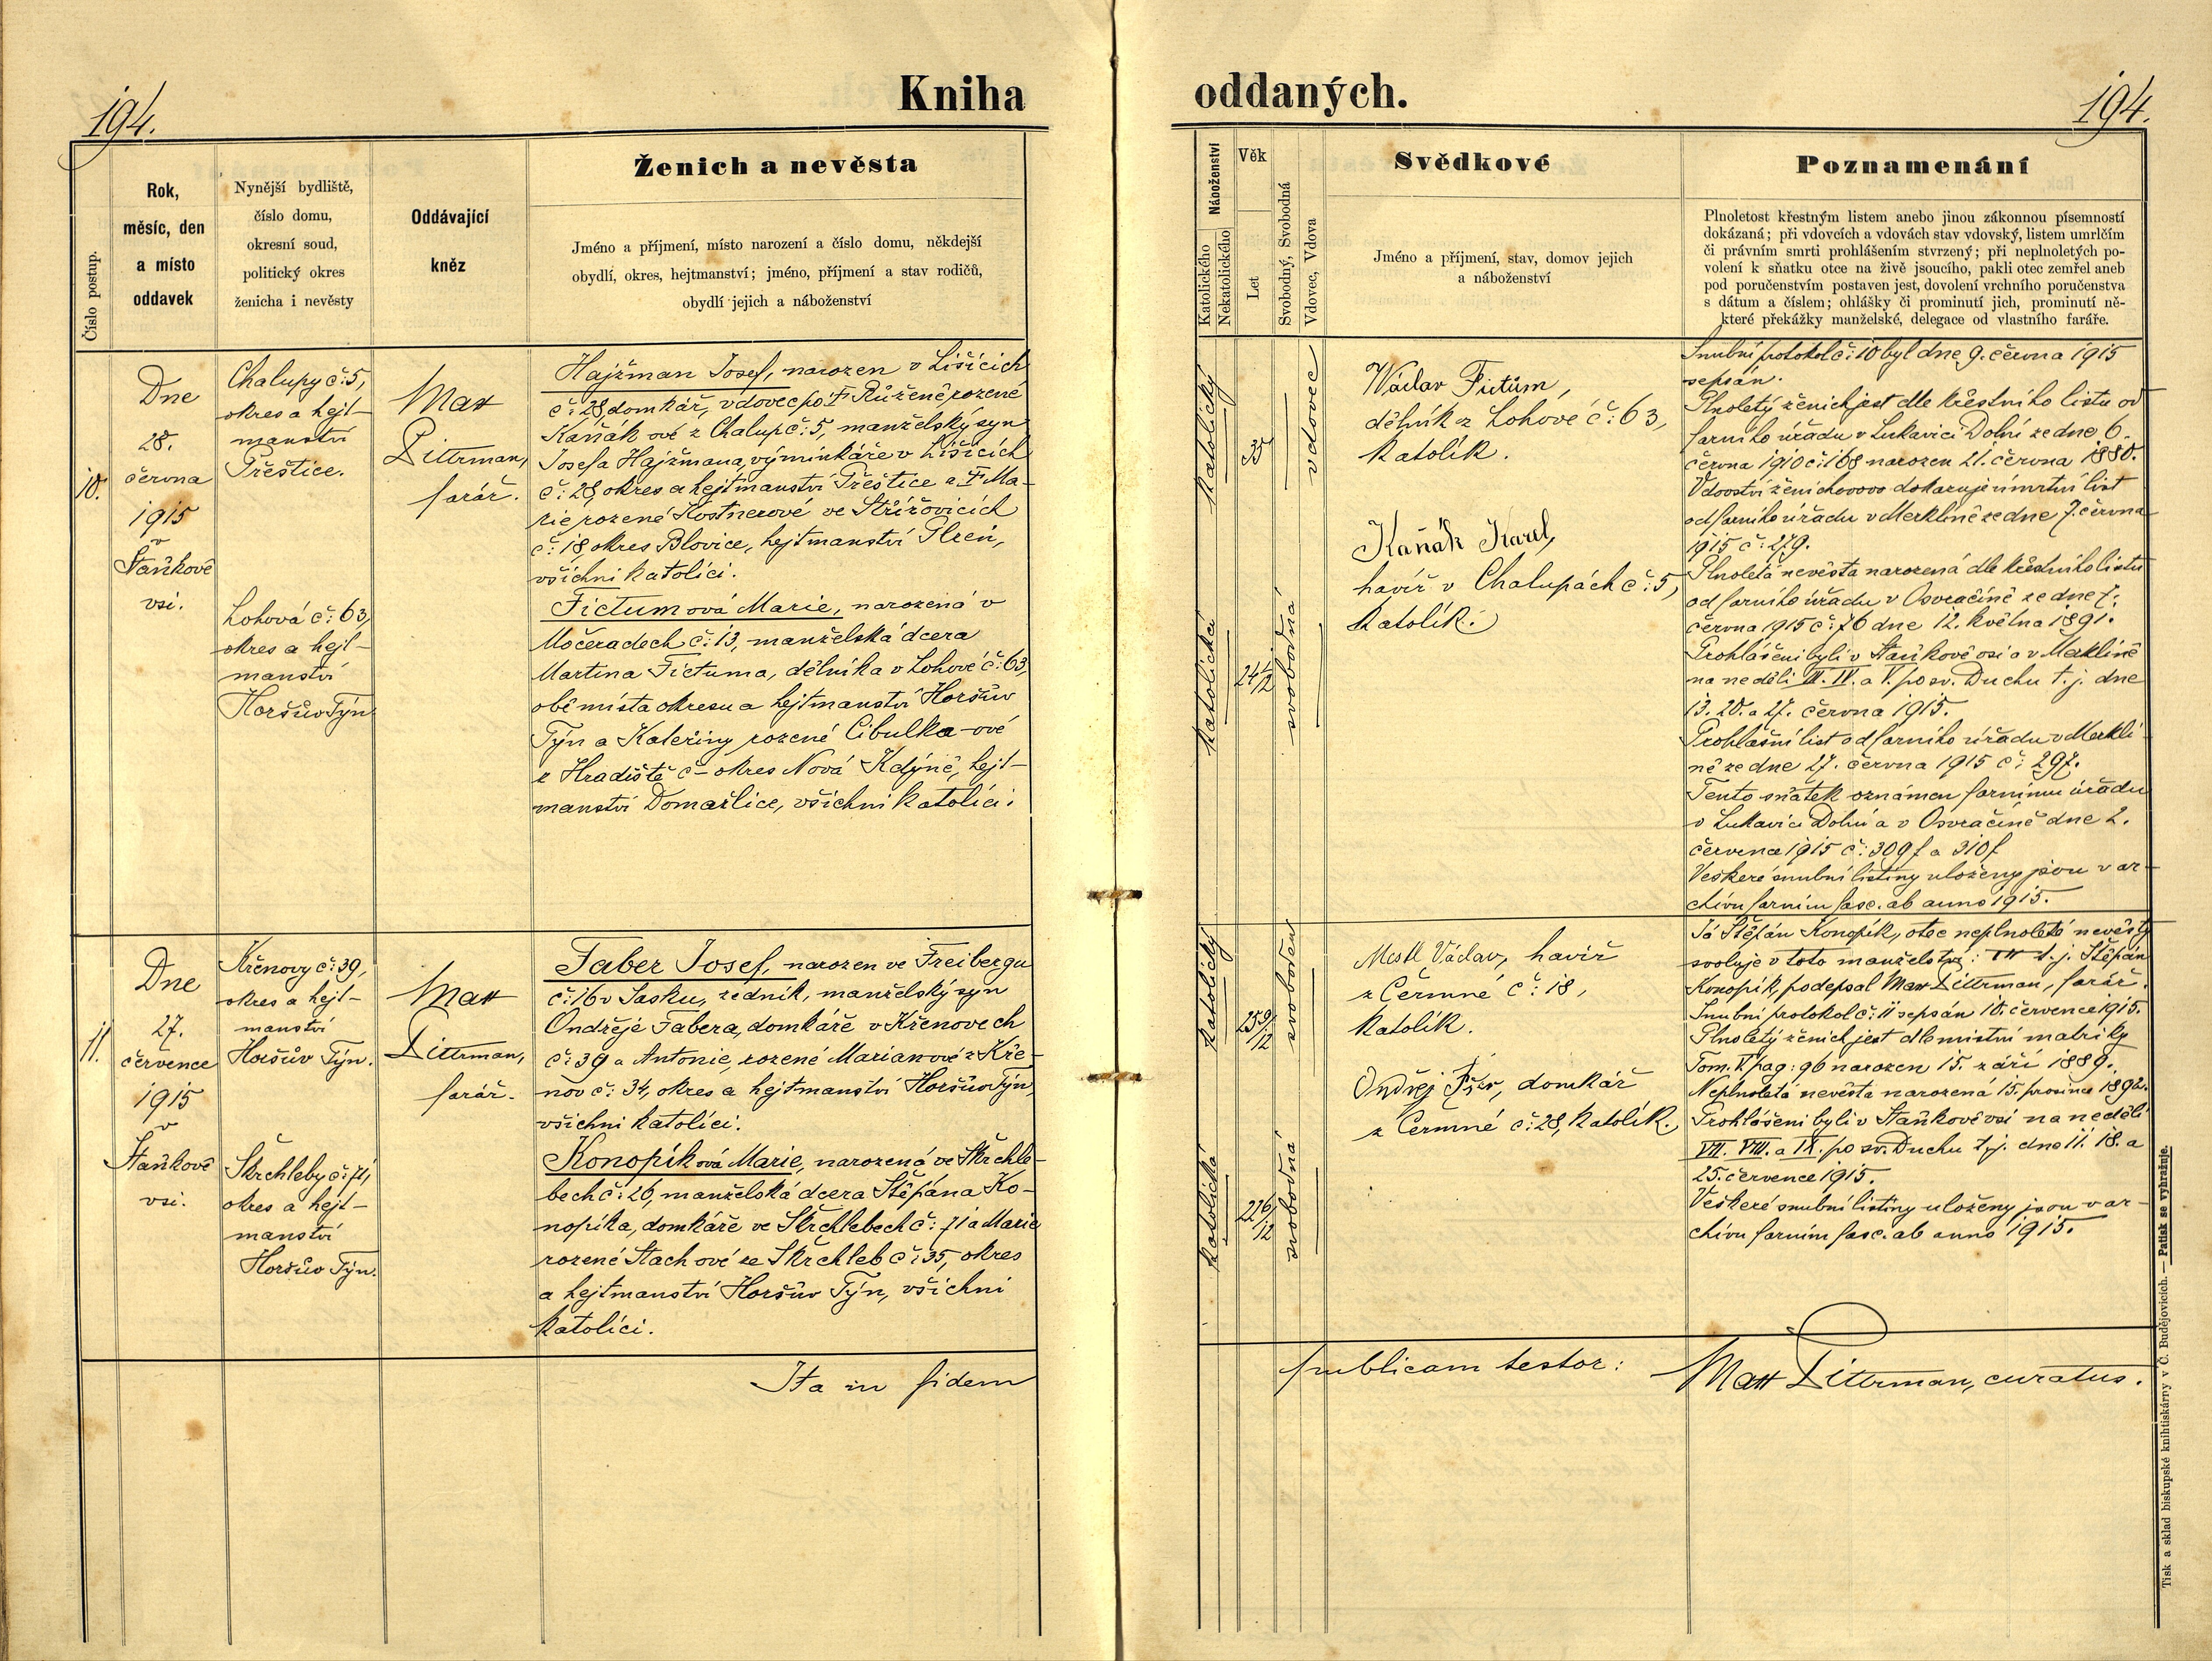 194.
Kniha
oddaných.
194.
Číslo postup.
Rok,
měsíc, den
a místo
oddavek
Nynější bydliště,
číslo domu,
okresní soud,
politický okres
ženicha i nevěsty
Oddávající
kněz
Ženich a nevěsta
Jméno a příjmení, místo narození a číslo domu, někdejší
obydlí, okres, hejtmanství; jméno, příjmení a stav rodičů,
obydlí jejich a náboženství
Náboženství
Katolického
Nekatolického
Věk
Let
Svobodný, Svobodná
Vdovec, Vdova
Svědkové
Jméno a příjmení, stav, domov jejich
a náboženství
Poznamenání
Plnoletost křestným listem anebo jinou zákonnou písemností
dokázaná; při vdovcích a vdovách stav vdovský, listem umrlčím
či právním smrti prohlášením stvrzený; při neplnoletých po-
volení k sňatku otce na živě jsoucího, pakli otec zemřel aneb
pod poručenstvím postaven jest, dovolení vrchního poručenstva
s dátum a číslem; ohlášky či prominutí jich, prominutí ně-
které překážky manželské, delegace od vlastního faráře.
10.
Dne
28.
června
1915
v
Staňkově
vsi.
Chalupy č: 5,
okres a hejt-
manství
Přeštice.
Lohová č: 63,
okres a hejt-
manství
Horšův Týn
Max
Dittrman,
farář.
Hajžman Josef, narozen v Lišicích
č: 28, domkář, vdovec po † Růženě rozené
Kaňák ové z Chalup č: 5, manželský syn
Josefa Hajžmana, výminkáře v Lišicích
č: 28, okres a hejtmanství Přeštice a † Ma-
rie rozené Kostnerové ve Střížovicích
č: 18, okres Blovice, hejtmanství Plzeň,
všichni katolíci.
Fictumová Marie, narozená v
Močeradech č: 13, manželská dcera
Martina Fictuma, dělníka v Lohové č: 63,
obě místa okresu a hejtmanství Horšův
Týn a Kateřiny rozené Cibulka-ové
z Hradiště č - okres Nová Kdýně, hejt-
manství Domažlice, všichni katolíci.
katolický
35
vdovec
katolická
24 1/12
svobodná
Václav Fictum,
dělník z Lohové č: 63,
katolík.
Kaňák Karel,
havíř v Chalupách č: 5,
katolík.
Snubní protokol č: 10 byl dne 9. června 1915
sepsán.
Plnoletý ženich jest dle křestního listu od
farního úřadu v Lukavici Dolní ze dne 6.
června 1910 č: 168 narozen 21. června 1880.
Vdovství ženichovo dokazuje úmrtní list
od farního úřadu v Merklíně ze dne 7. června
1915 č: 279.
Plnoletá nevěsta narozená dle křestního listu
od farního úřadu v Osvračíně ze dne 7.
června 1915 č: 76 dne 12. května 1891.
Prohlášeni byli v Staňkově vsi a v Merklíně
na neděli III. IV. a V. po sv. Duchu t. j. dne
13. 20. a 27. června 1915.
Prohlašní list od farního úřadu v Merklí-
ně ze dne 27. června 1915 č: 297.
Tento sňatek oznámen farnímu úřadu
v Lukavici Dolní a v Osvračíně dne 2.
července 1915 č: 309 f a 310 f
Veškeré snubní listiny uloženy jsou v ar-
chivu farním fasc. ab anno 1915.
11.
Dne
27.
července
1915
v
Staňkově
vsi.
Křenovy č: 39,
okres a hejt-
manství
Horšův Týn.
Škrchleby č: 71,
okres a hejt-
manství
Horšův Týn.
Max
Dittrman,
farář.
Faber Josef, narozen ve Freibergu
č: 16 v Sasku, zedník, manželský syn
Ondřeje Fabera, domkáře v Křenovech
č: 39 a Antonie, rozené Marianové z Kře-
nov č: 34, okres a hejtmanství Horšův Týn,
všichni katolíci.
Konopíková Marie, narozená ve Škrchle-
bech č: 26, manželská dcera Štěpána Ko-
nopíka, domkáře ve Škrchlebech č: 71 a Marie
rozené Stachové ze Škrchleb č: 35, okres
a hejtmanství Horšův Týn, všichni
katolíci.
katolický
25 9/12
svoboden
katolická
22 6/12
svobodná
Václav, havíř
z Čermné č: 18,
katolík.
Ondřej domkář
z Čermné č: 28, katolík.
Já Štěpán Konopík, otec neplnoleté nevěsty
svoluje v toto manželství: ††† t. j. Štěpán
Konopík, podepsal Max Dittrman, farář.
Snubní protokol č: 11 sepsán 10. července 1915.
Plnoletý ženich jest dle místní matriky
Tom. V pag: 96 narozen 15. září 1889.
Neplnoletá nevěsta narozená 15. prosince 1892.
Prohlášeni byli v Staňkově vsi na neděli
VII. VIII. a IX. po sv. Duchu t. j. dne 11. 18. a
25. července 1915.
Veškeré snubní listiny uloženy jsou v ar-
chivu farním fasc. ab anno 1915.
Ita in fidem
publicam testor:
Max Dittrman, curatus.
Tisk a sklad biskupské knihtiskárny v Č. Budějovicích. — Patisk se vyhražuje.